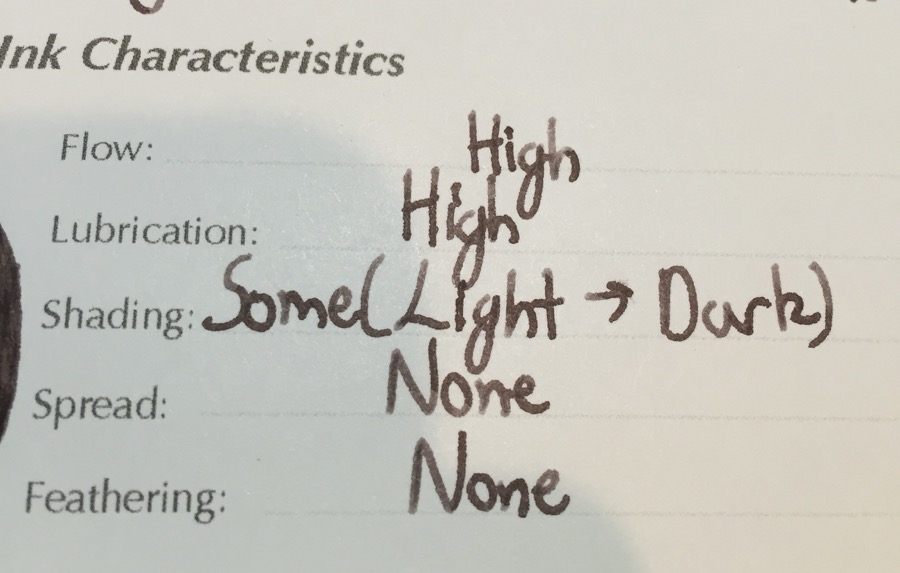 Ink Characteristics
Flow: High
Lubrication: High
Shading: Some (Light → Dark)
Spread: None
Feathering: None